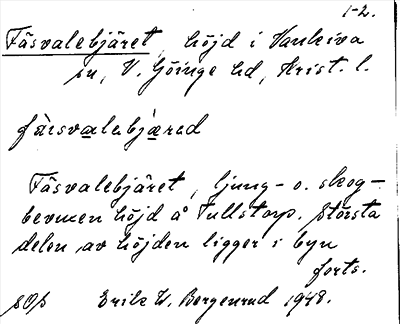 1-2.
Fäsvalebjäret, höjd i Vankiva
sn, V. Göinge hd, Krist. l.
fàisvalebjæred
Fäsvalebjäret, ljung- o. skog-
bevuxen höjd å Tullstorp. Största
delen av höjden ligger i byn
forts.
Erik W. Bergenrud 1948.